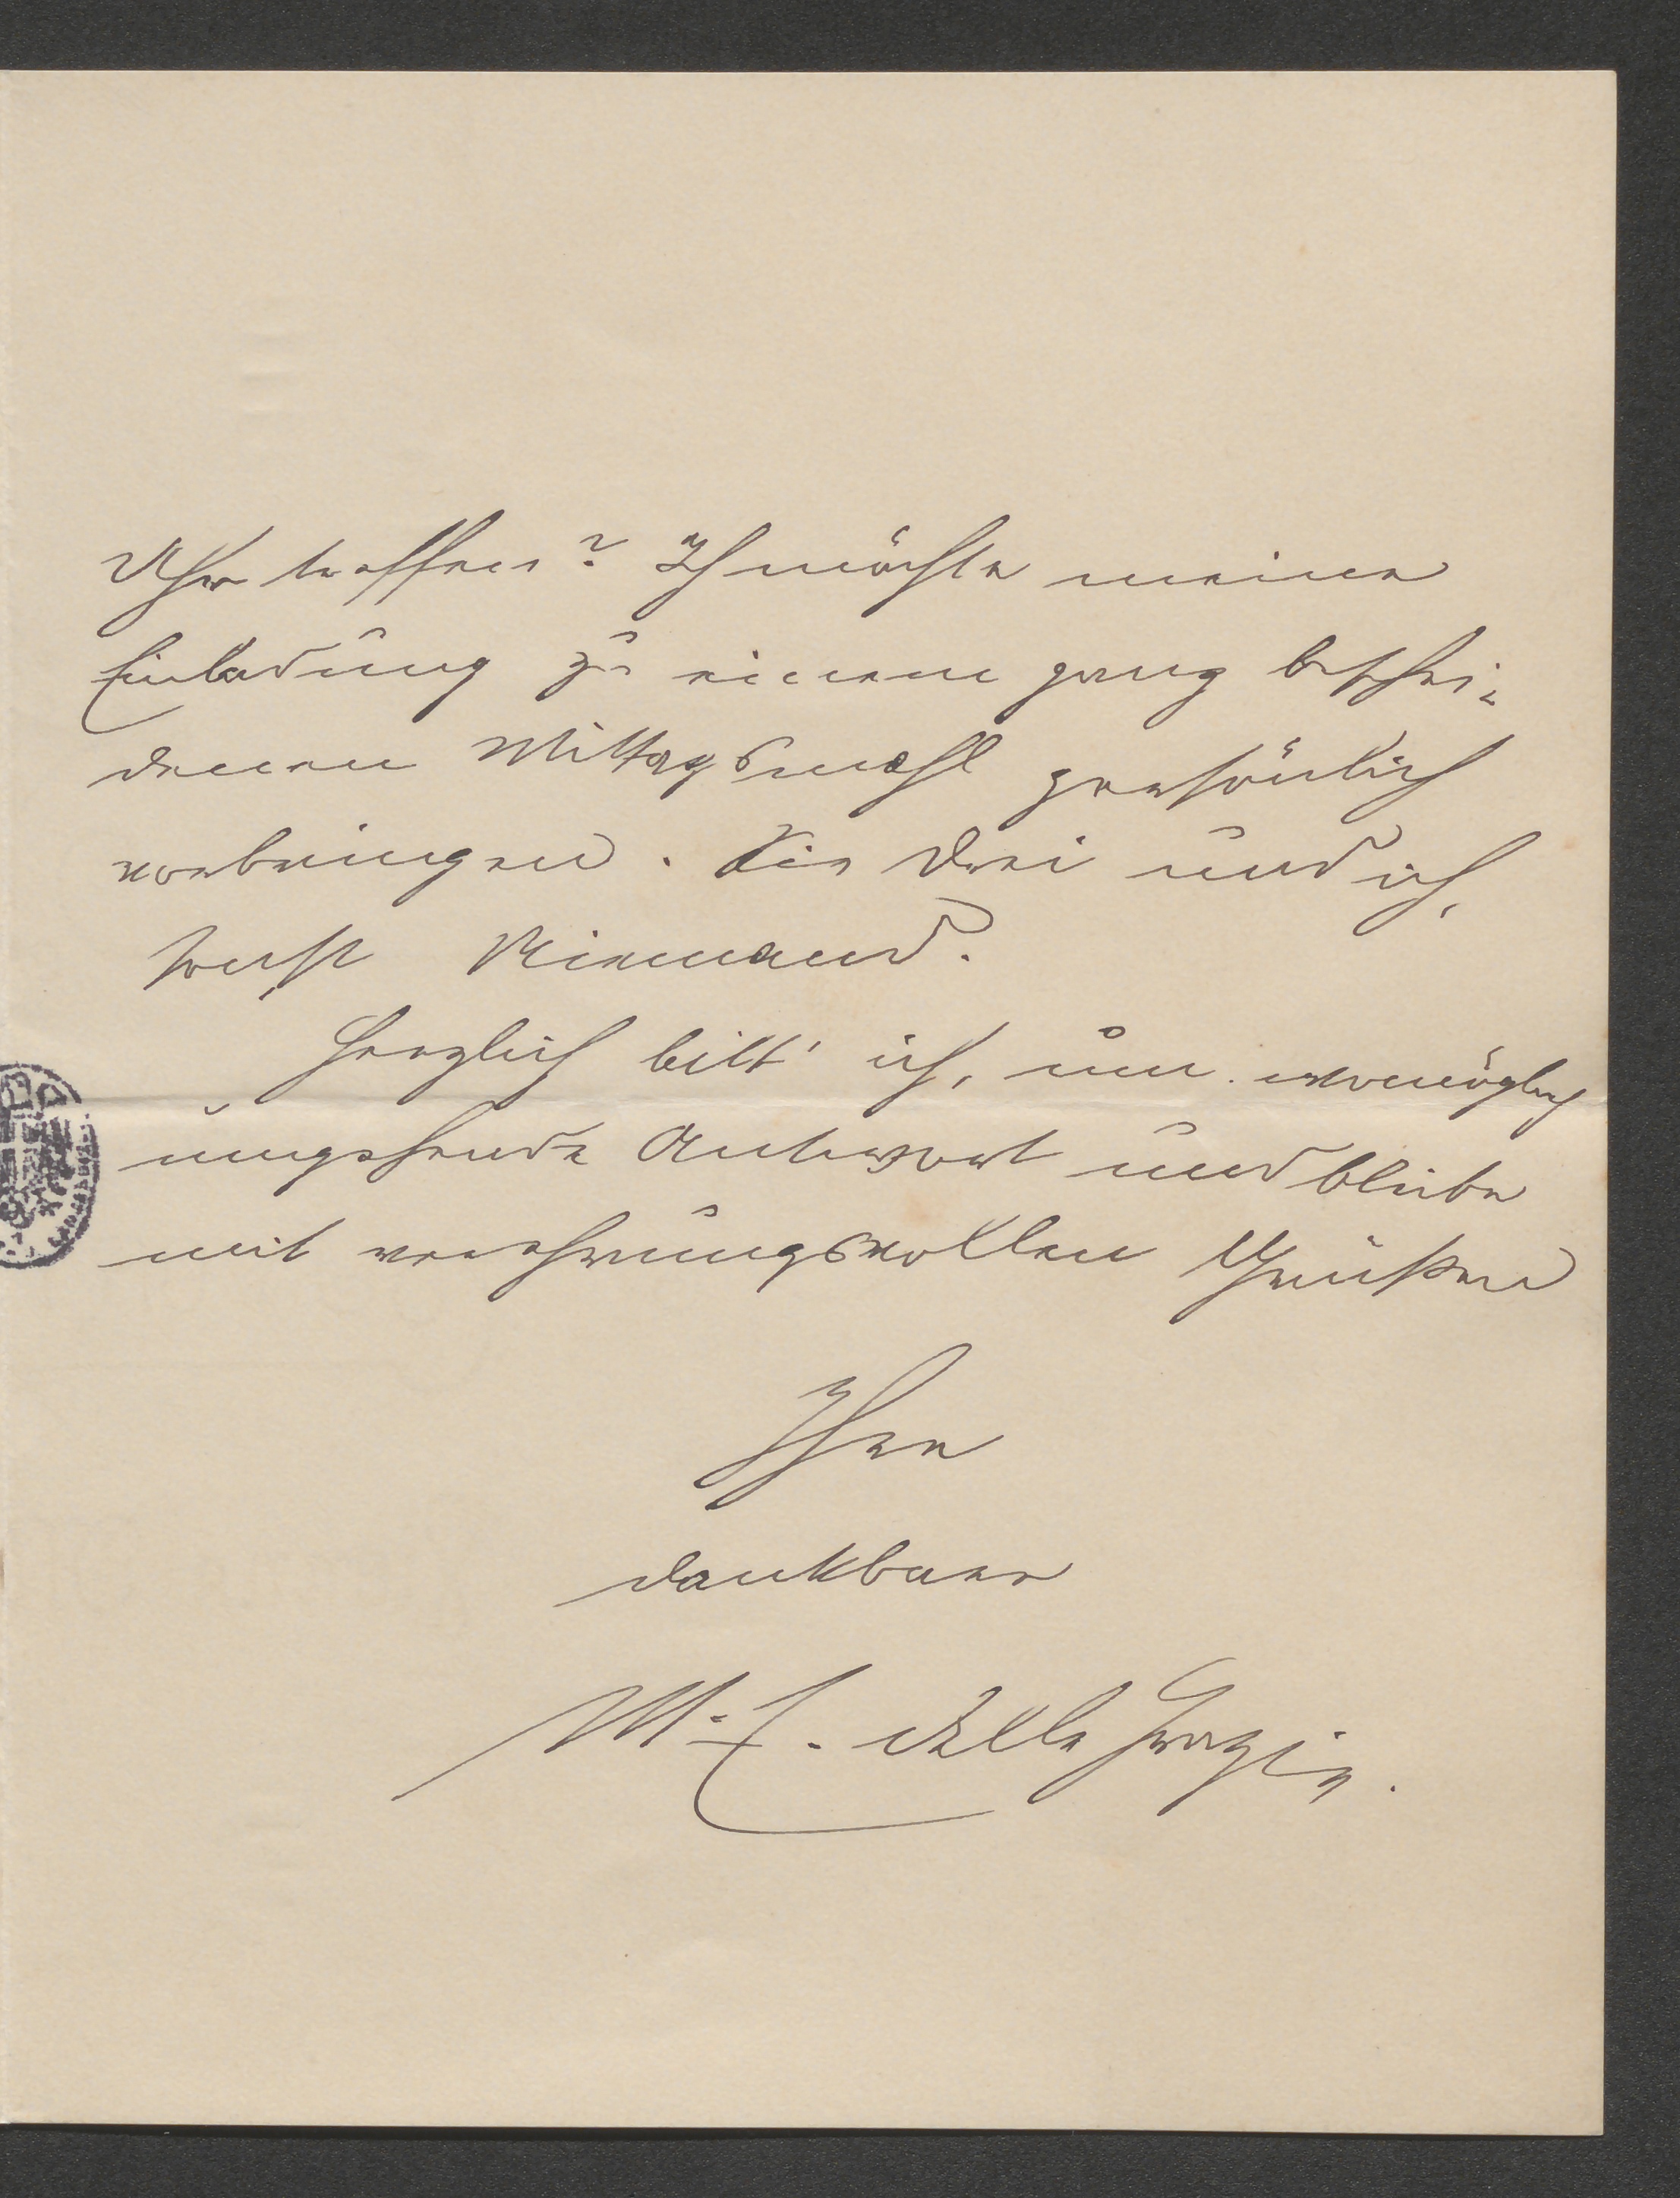 Uhr treffen? Ich möchte meine
Einladung zu einem ganz beschei-
denen Mittagsmahl persönlich
vorbringen. Sie drei und ich,
sonst Niemand.
Herzlich bitt' ich, um womöglich
umgehende Antwort und bleibe
mit verehrungsvollen Grüßen
Ihre
dankbare
M. E. delle Grazie.